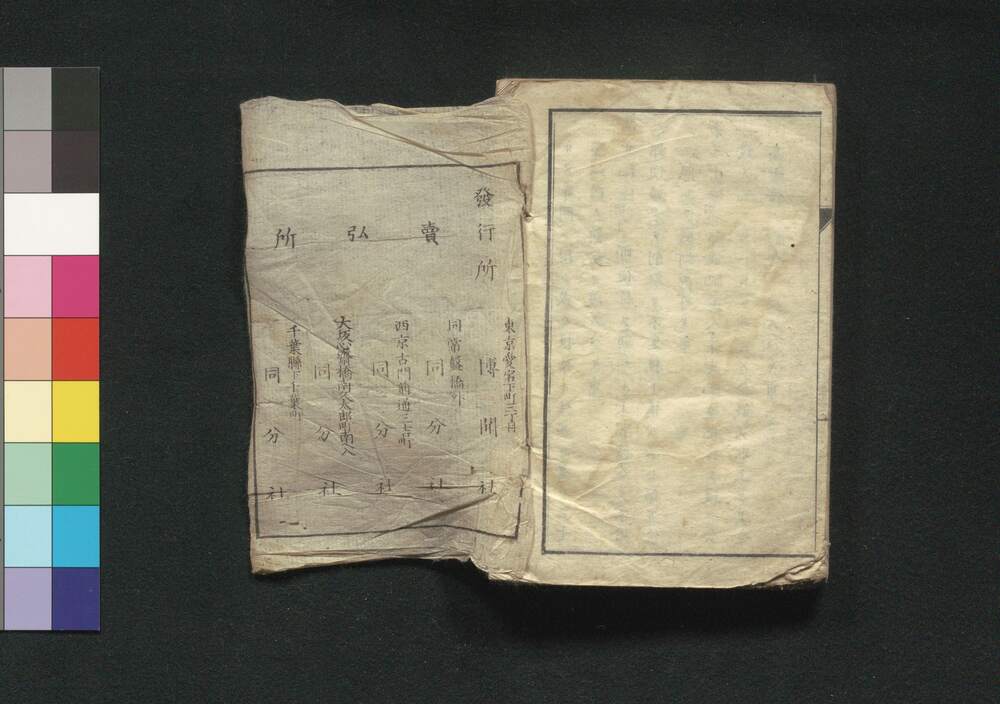 發行所
東京愛宕下町三丁目
博聞社
賣弘所
同常盤橋外
同分社
西京古門前通三吉町
同分社
大坂心斎橋南久太郎町南入
同分社
千葉縣下千葉町
同分社